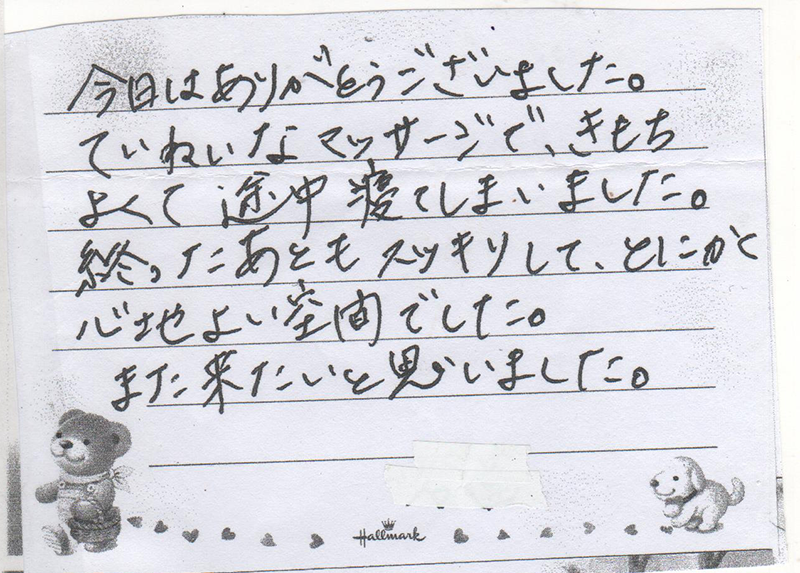 今日はありがとうございました。
ていねいなマッサージで、きもち
よくて途中寝てしまいました。
終ったあともスッキリして、とにかく
心地よい空間でした。
また来たいと思いました。
Hallmark